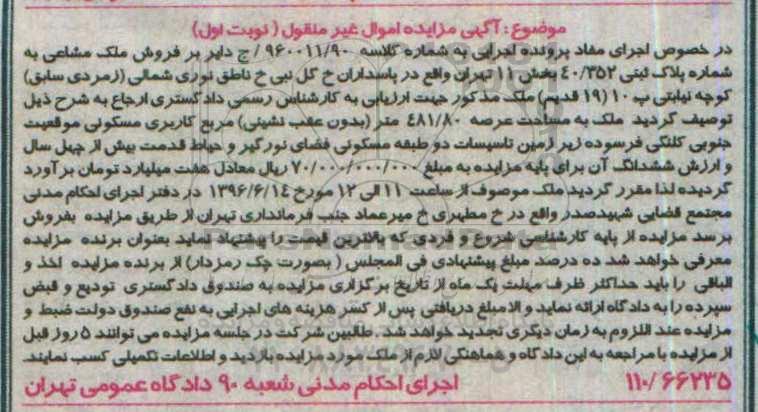 موضوع: آگهی مزایده اموال غیر منقول (نوبت اول)
در خصوص اجرای مفاد پرونده اجرایی به شماره کلاسه ۹۶۰۰۱۱/۹۰/ج دایر بر فروش ملک مشاعی به
شماره پلاک ثبتی ۴۰/۳۵۲ بخش ۱۱ تهران واقع در پاسداران خ گل نبی خ ناطق نوری شمالی (زمردی سابق)
کوچه نیابتی پ ۱۰ (۱۹ قدیم) ملک مذکور جهت ارزیابی به کارشناس رسمی دادگستری ارجاع به شرح ذیل
توصیف گردید ملک به مساحت عرصه ۴۸۱/۸۰ متر (بدون عقب نشینی) مربع کاربری مسکونی موقعیت
جنوبی کلنگی فرسوده زیر زمین تاسیسات دو طبقه مسکونی فضای نورگیر و حیاط قدمت بیش از چهل سال
و ارزش ششدانگ آن برای پایه مزایده به مبلغ ۷۰/۰۰۰/۰۰۰/۰۰۰ ریال معادل هفت میلیارد تومان برآورد
گردیده لذا مقرر گردید ملک موصوف از ساعت ۱۱ الی ۱۲ مورخ ۱۳۹۶/۶/۱۴ در دفتر اجرای احکام مدنی
مجتمع قضایی شهیدصدر واقع در خ مطهری خ میرعماد جنب فرمانداری تهران از طریق مزایده بفروش
برسد مزایده از پایه کارشناسی شروع و فردی که بالاترین قیمت را پیشنهاد نماید بعنوان برنده مزایده
معرفی خواهد شد ده درصد مبلغ پیشنهادی فی المجلس (بصورت چک رمزدار) از برنده مزایده اخذ و
الباقی را باید حداکثر ظرف مهلت یک ماه از تاریخ برگزاری مزایده به صندوق دادگستری تودیع و قبض
سپرده را به دادگاه ارائه نماید و الا مبلغ دریافتی پس از کسر هزینه های اجرایی به نفع صندوق دولت ضبط و
مزایده عند اللزوم به زمان دیگری تجدید خواهد شد. طالبین شرکت در جلسه مزایده می توانند ۵ روز قبل
از مزایده با مراجعه به این دادگاه و هماهنگی لازم از ملک مورد مزایده بازدید و اطلاعات تکمیلی کسب نمایند.
۱۱۰/۶۶۲۳۵ اجرای احکام مدنی شعبه ۹۰ دادگاه عمومی تهران